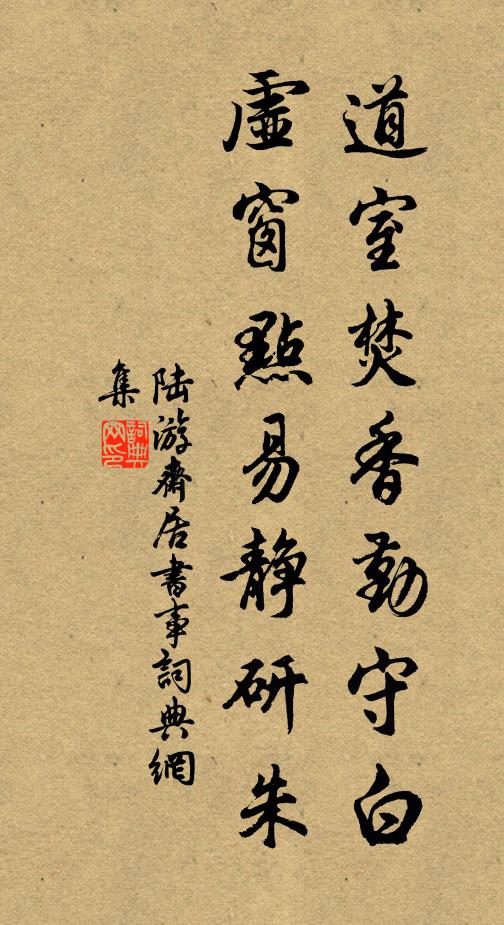 道室焚香勤守白
虛窗點易静研朱
陆游齋居書事詞典網
集
詞典
网印